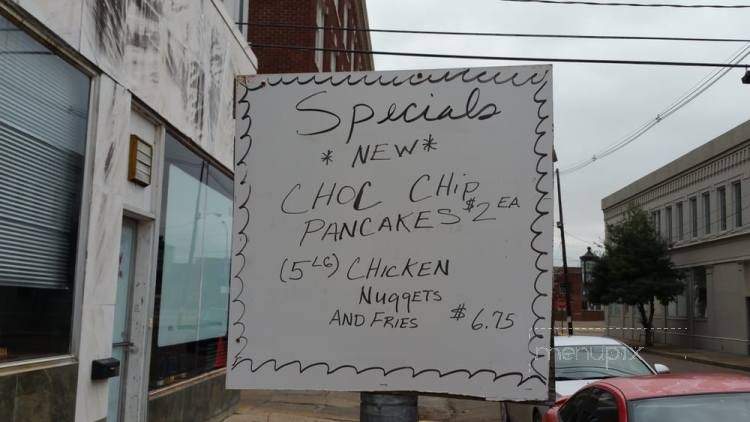 Specials
* NEW *
CHOC CHIP
PANCAKES $2 EA
(5 LG) CHICKEN
NUGGETS
AND FRIES $6.75
menupix